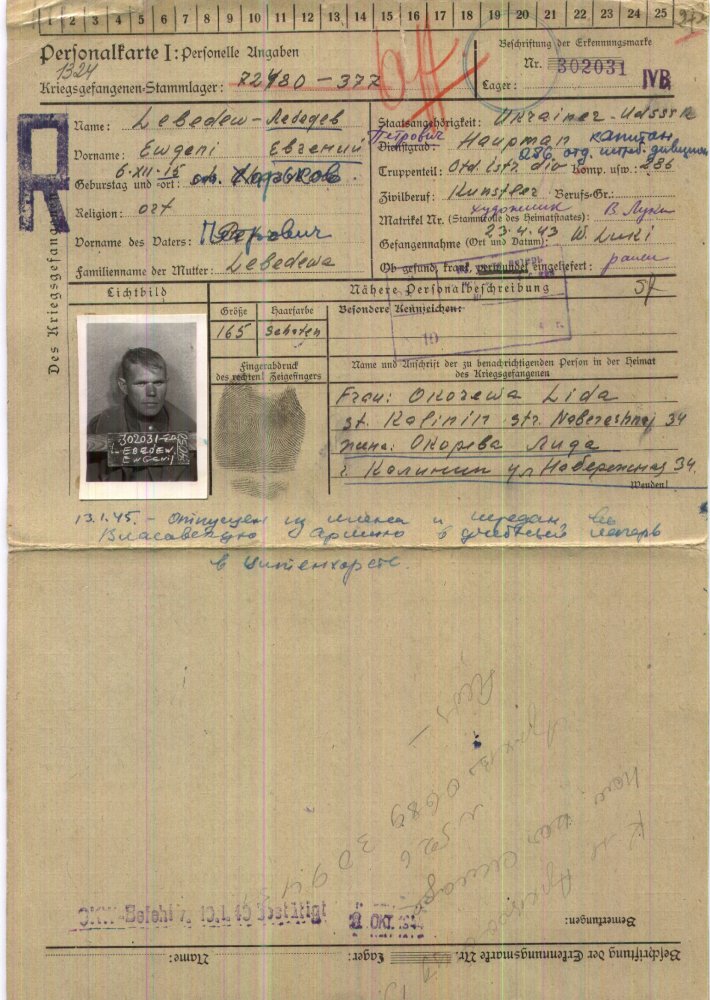 1 2 3 4 5 6 7 8 9 10 11 12 13 14 15 16 17 18 19 20 21 22 23 24 25
Personalkarte I: Personelle Angaben
1324
Kriegsgefangenen-Stammlager: 72480-377
Beschriftung der Erkennungsmarke
Nr. 302031
Lager: IVB
R
Des Kriegsgefangenen
Name: Lebedew-Лебедев
Vorname: Ewgeni Евгений
6-XII-15
Geburtstag und -ort: Харьков
Religion: ort
Vorname des Vaters: Петрович
Familienname der Mutter: Lebedewa
Staatsangehörigkeit: Ukrainer-UdSSR
Петрович
Dienstgrad: Hauptman капитан
286 отд. истреб. дивизион
Truppenteil: Otd. istr. div Komp. usw.: 286
Zivilberuf: Kunstler Berufs-Gr.:
художник В Луки
Matrikel Nr. (Stammrolle des Heimatstaates):
23-4-43 W. Luki
Gefangennahme (Ort und Datum):
Ob gesund, krank, verwundet eingeliefert: ранен
Lichtbild
Nähere Personalbeschreibung
Größe Haarfarbe Besondere Kennzeichen:
165
10
Fingerabdruck
des rechten! Zeigefingers
Name und Anschrift der zu benachrichtigenden Person in der Heimat
des Kriegsgefangenen
Frau: Okorewa Lida
st. Kalinin str. Naberashnaj 34
жена: Окорева Лида
г. Калинин ул Набережная 34.
Wenden!
302031
LEBEDEW
EWGENIJ
13.1.45. - Отпущен из плена и передан во
Власовскую армию в учебный лагерь
в
OKW-Befehl v. bestätigt
OKT. 1944
Bemerkungen:
Beschriftung der Erkennungsmarke Nr. Lager: Name: